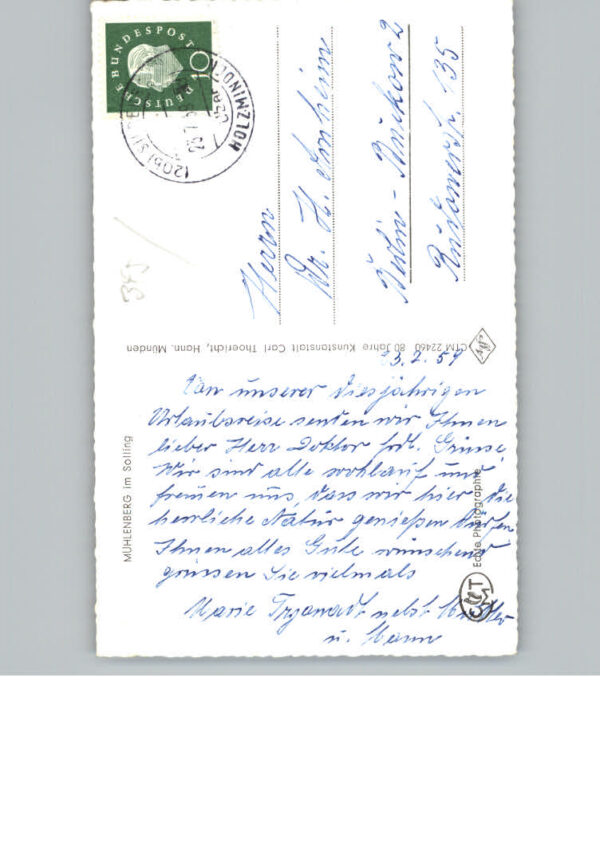 DEUTSCHE BUNDESPOST
10
HOLZMINDEN
Herrn
Dr. H. Arnheim
Berlin - Rudow 2
135
CTM 22460 80 Jahre Kunstanstalt Carl Thoericht, Hann. Münden
MÜHLENBERG im Solling
Echte Photographie
23.7.59
Von unserer diesjährigen
Urlaubsreise senden wir Ihnen
lieber Herr Doktor frdl. Grüsse
Wir sind alle wohlauf und
freuen uns, dass wir hier die
herrliche Natur genießen dürfen
Ihnen alles Gute wünschend
grüssen Sie vielmals
Marie nebst Mutter
u. Mann